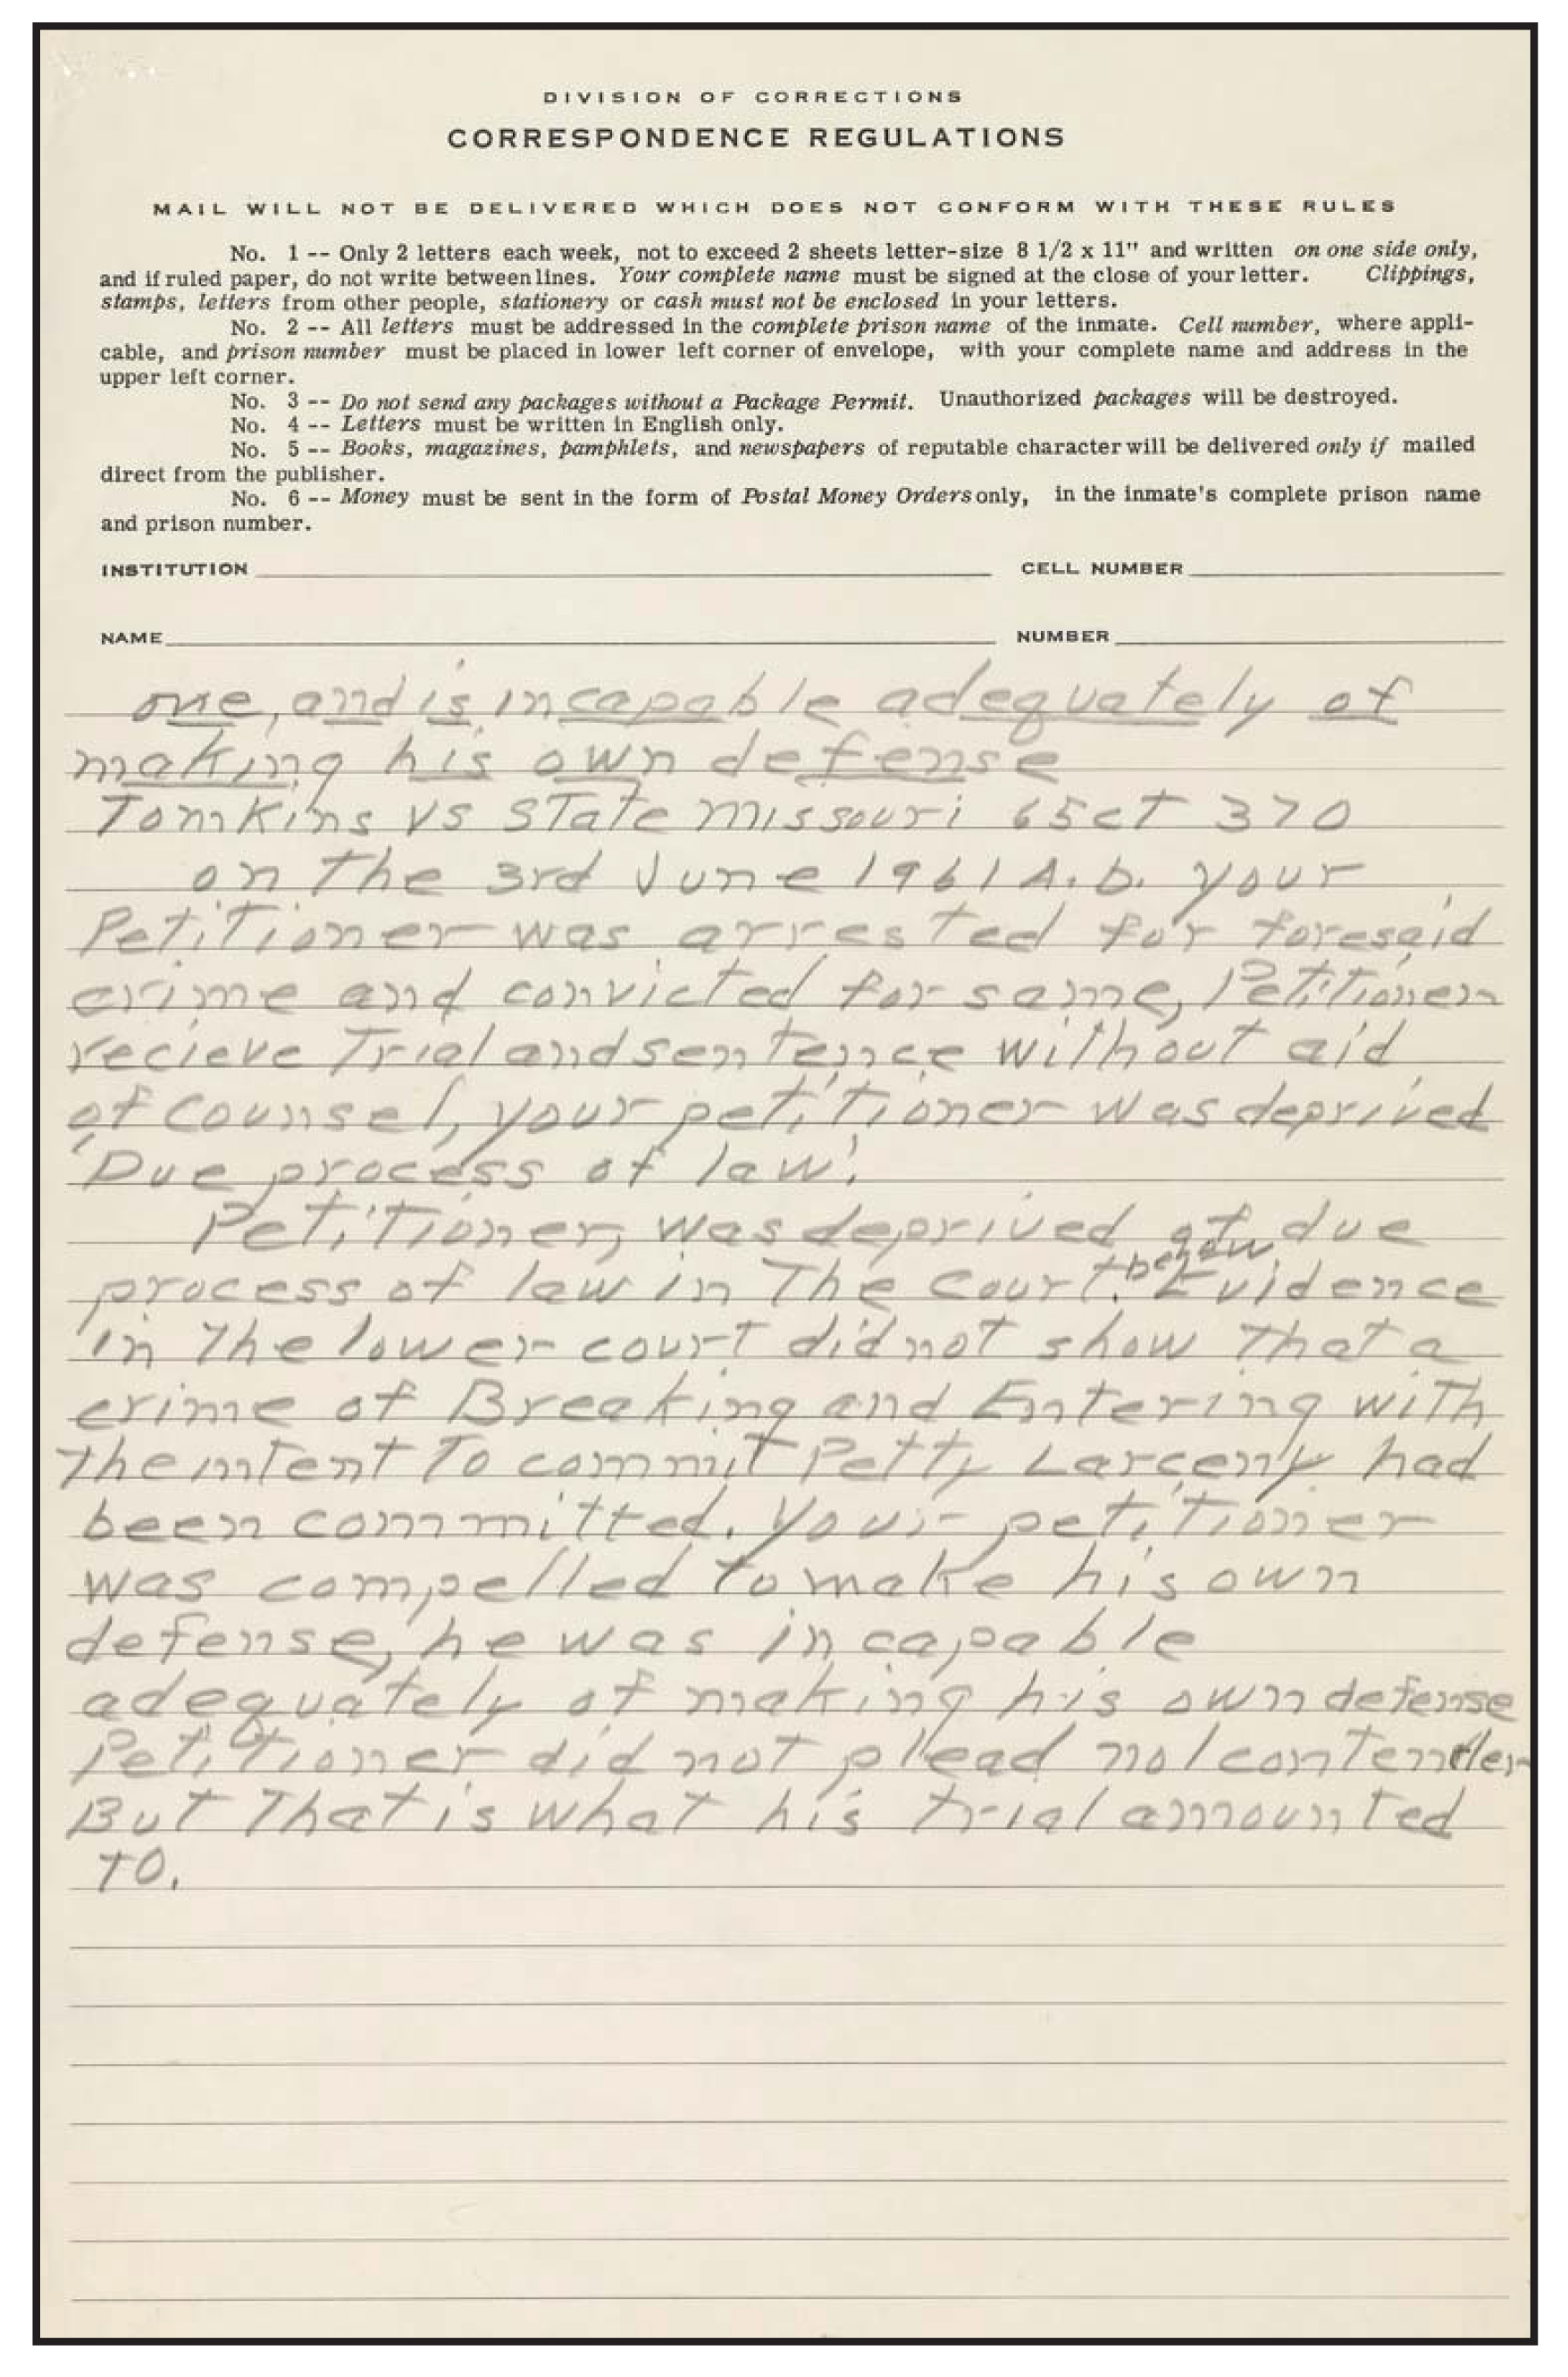 DIVISION OF CORRECTIONS
CORRESPONDENCE REGULATIONS
MAIL WILL NOT BE DELIVERED WHICH DOES NOT CONFORM WITH THESE RULES
No. 1 -- Only 2 letters each week, not to exceed 2 sheets letter-size 8 1/2 x 11" and written on one side only,
and if ruled paper, do not write between lines. Your complete name must be signed at the close of your letter. Clippings,
stamps, letters from other people, stationery or cash must not be enclosed in your letters.
No. 2 -- All letters must be addressed in the complete prison name of the inmate. Cell number, where appli-
cable, and prison number must be placed in lower left corner of envelope, with your complete name and address in the
upper left corner.
No. 3 -- Do not send any packages without a Package Permit. Unauthorized packages will be destroyed.
No. 4 -- Letters must be written in English only.
No. 5 -- Books, magazines, pamphlets, and newspapers of reputable character will be delivered only if mailed
direct from the publisher.
No. 6 -- Money must be sent in the form of Postal Money Orders only, in the inmate's complete prison name
and prison number.
INSTITUTION CELL NUMBER
NAME NUMBER
one, and is incapable adequately of
making his own defense
Tomkins vs State Missouri 65ct 370
on the 3rd June 1961 A.D. your
Petitioner was arrested for foresaid
crime and convicted for same, Petitioner
recieve Trial and sentence without aid
of counsel, your petitioner was deprived
'Due process of law'.
Petitioner, was deprived of due
process of law in The court below. Evidence
in the lower court did not show that a
crime of Breaking and Entering with
the intent To commit Petty Larceny had
been committed. Your petitioner
was compelled to make his own
defense, he was incapable
adequately of making his own defense
Petitioner did not plead nol contender
But That is what his trial amounted
to.